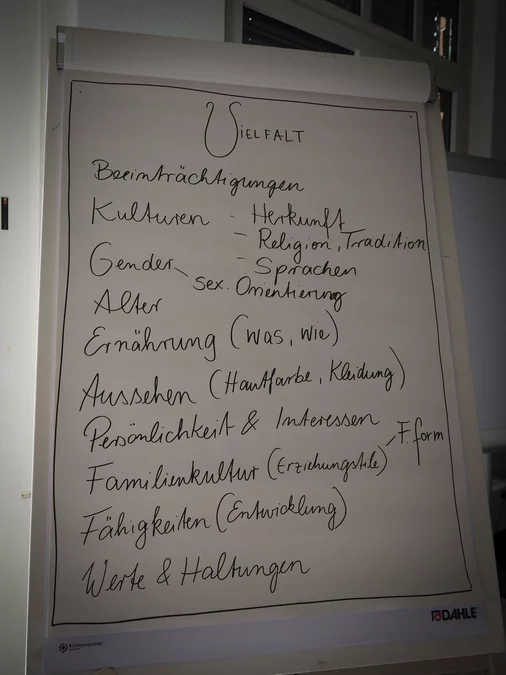 VIELFALT
Beeinträchtigungen
Kulturen - Herkunft
- Religion, Tradition
- Sprachen
Gender
sex. Orientierung
Alter
Ernährung (was, wie)
Aussehen (Hautfarbe, Kleidung)
Persönlichkeit & Interessen
Familienkultur (Erziehungstile) F.form
Fähigkeiten (Entwicklung)
Werte & Haltungen
DAHLE